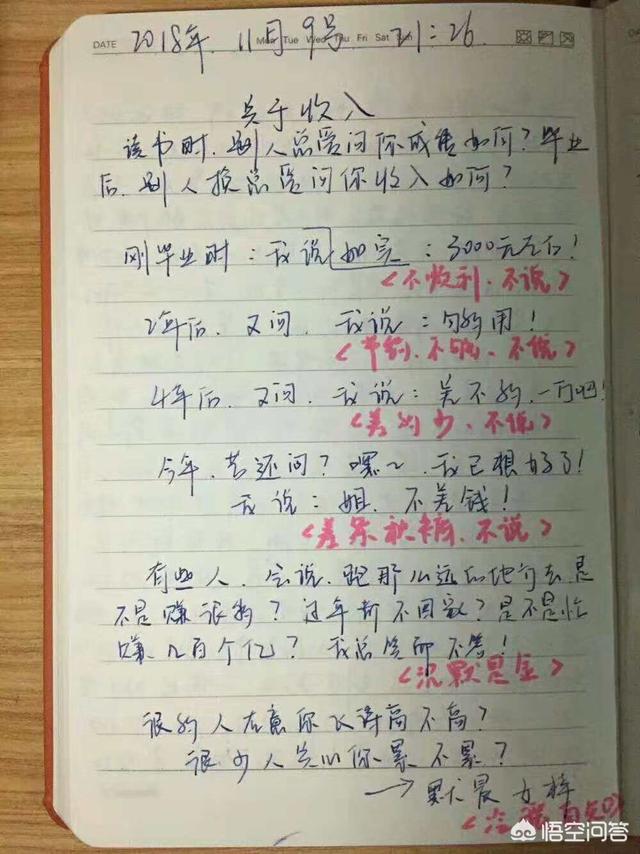 DATE 2018年 11月 9号 21:26
Mon Tue Wed Thu Fri Sat Sun
关于收入
读书时.别人总爱问你成绩如何?毕业
后.别人换总爱问你收入如何?
刚毕业时:我说如实:3000元左右!
<不顺利.不说>
2年后.又问.我说:勾的用!
<节约.不够.不说>
4年后.又问.我说:差不多.一万吧!
<差的少.不说>
今年.若还问?嘿~.我已想好了!
我说:姐.不差钱!
<差 不说>
有些人.会说.跑那么远的地方去.是
不是赚很多?过年都不回家?是不是忙
赚几百个亿?我总笑而不答!
<沉默是金>
很多人在意你飞得高不高?
很少人关心你累不累?
→默最女
悟空问答